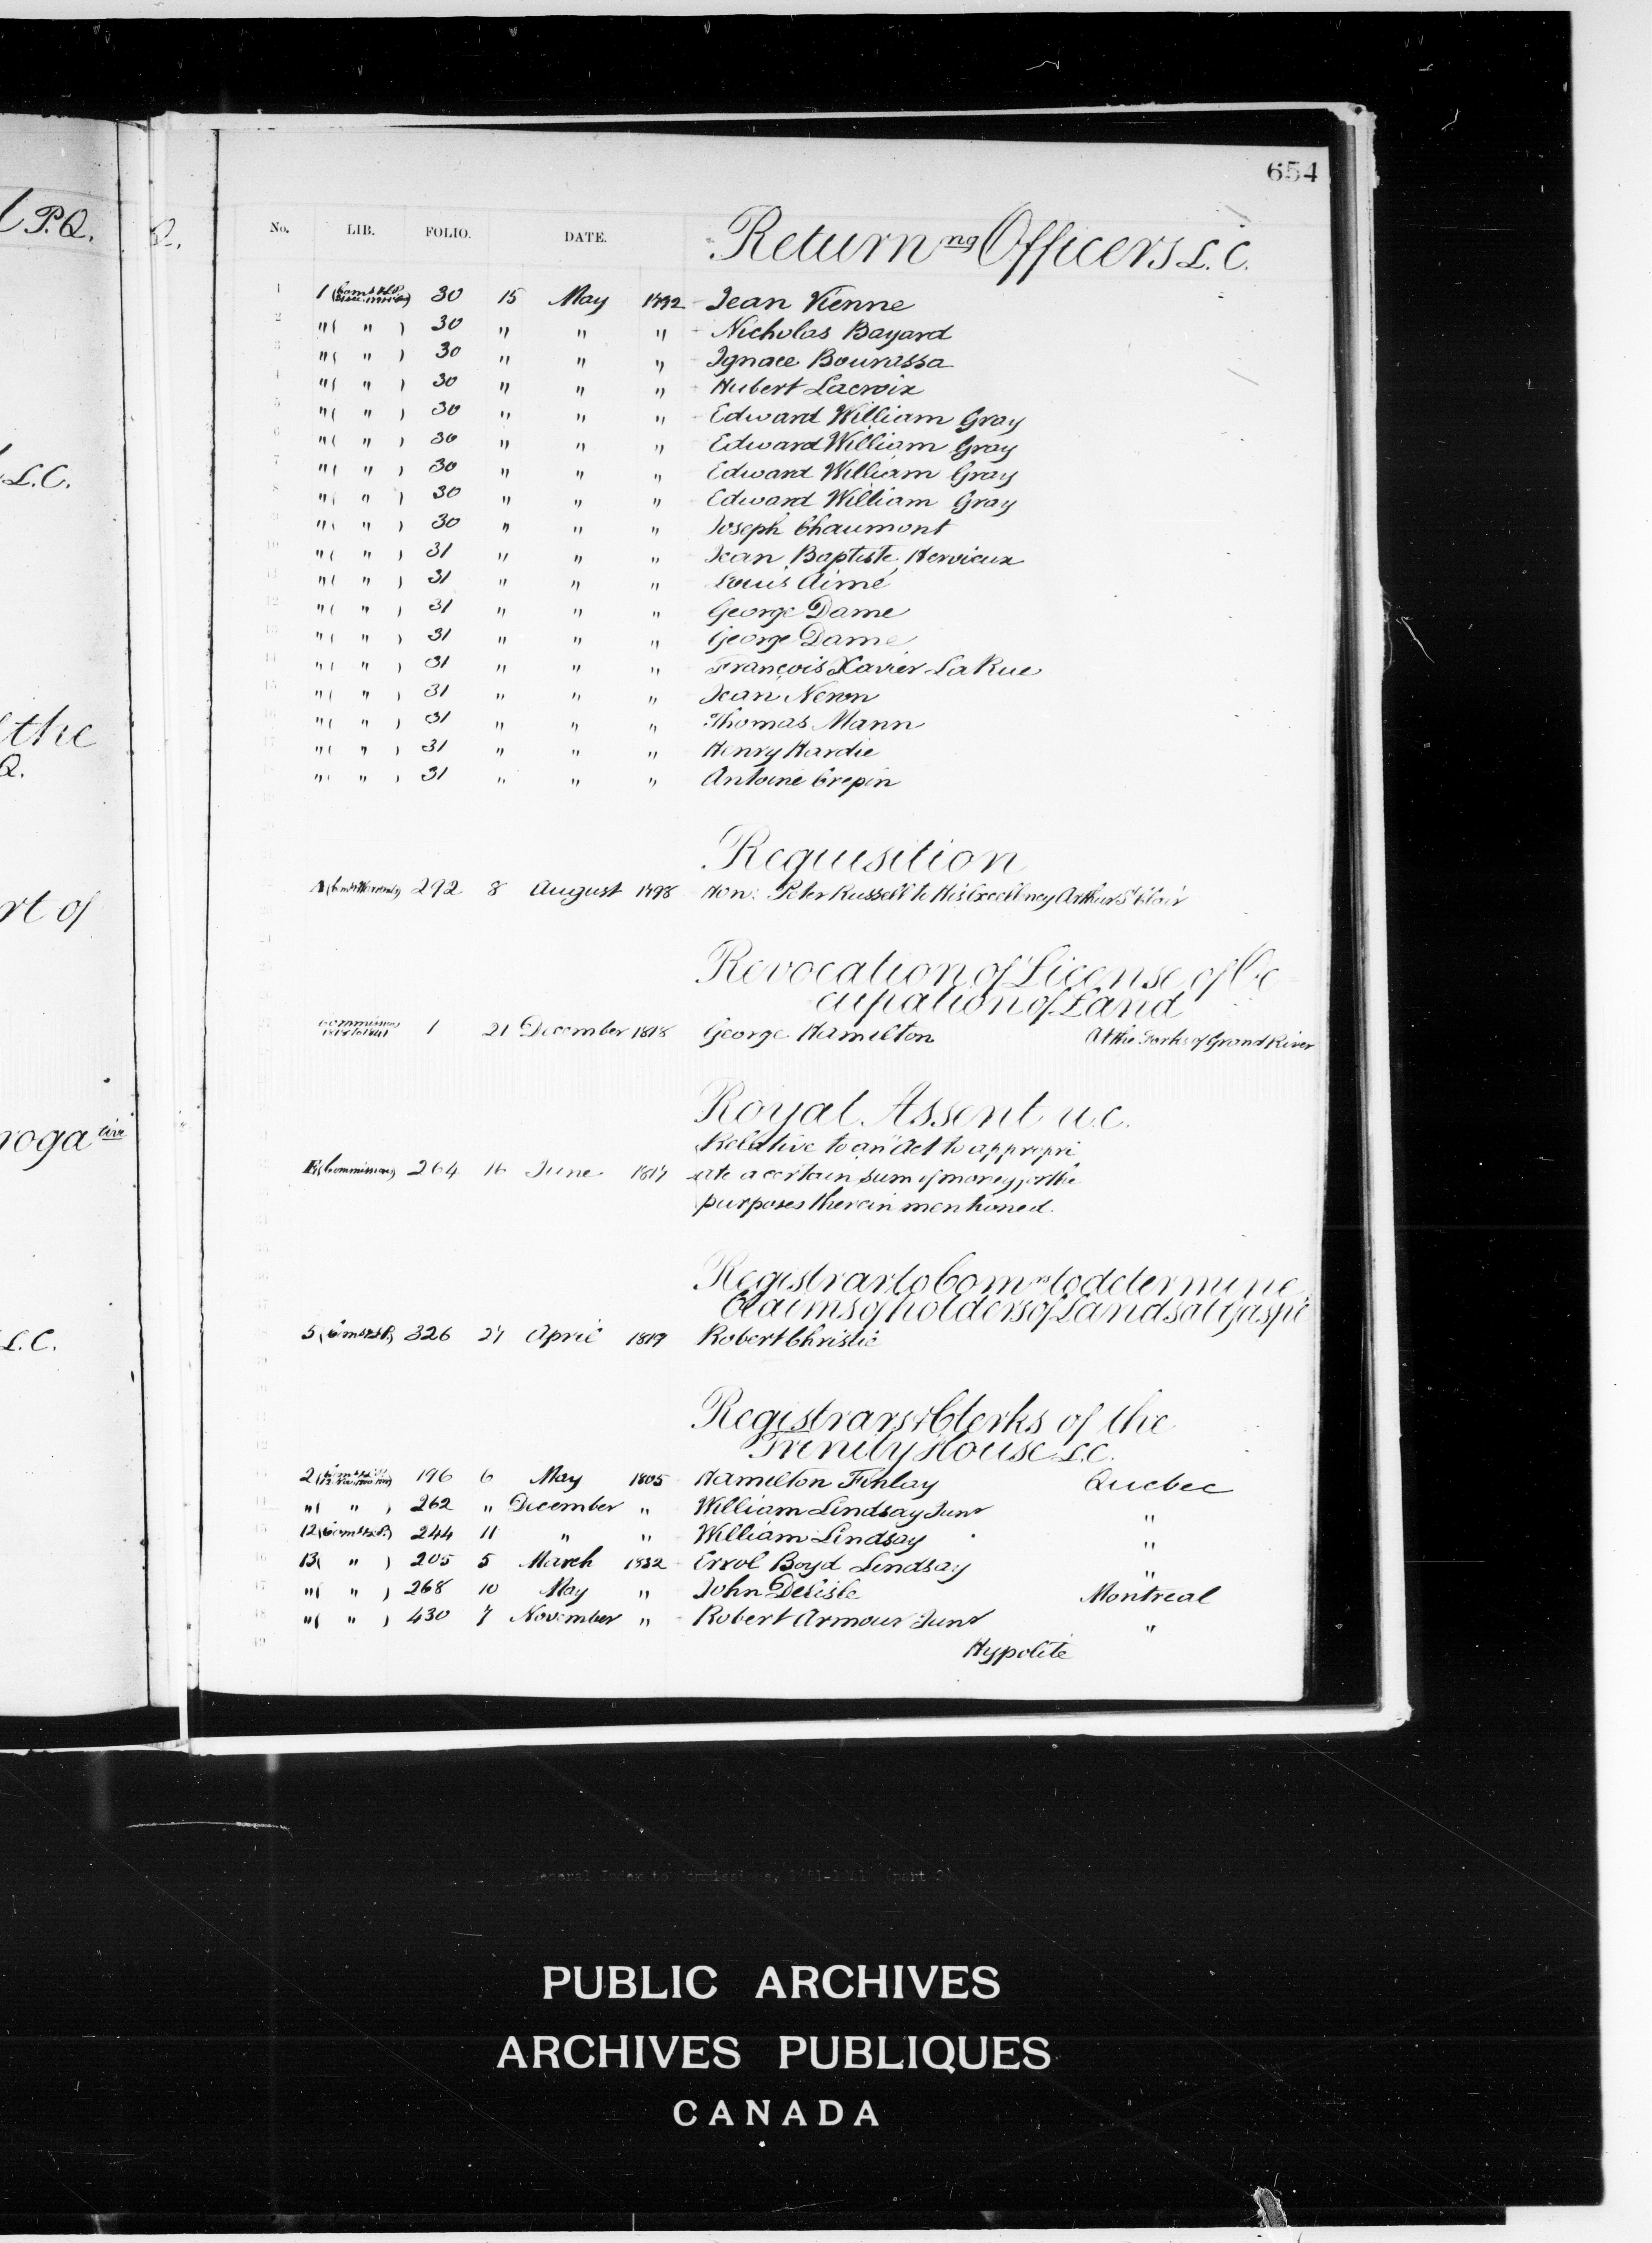 654
No. LIB. FOLIO. DATE. Return ng Officers L.C.
1 1 30 15 May 1792 Jean Vienne
2 "( " ) 30 " " " Nicholas Bayard
3 "( " ) 30 " " " Ignace Bourassa
4 "( " ) 30 " " " Hubert Lacroix
5 "( " ) 30 " " " Edward William Gray
6 "( " ) 30 " " " Edward William Gray
7 "( " ) 30 " " " Edward William Gray
8 "( " ) 30 " " " Edward William Gray
9 "( " ) 30 " " " Joseph Chaumont
10 "( " ) 31 " " " Jean Baptiste Hervieux
11 "( " ) 31 " " " Louis Aimé
12 "( " ) 31 " " " George Dame
13 "( " ) 31 " " " George Dame
14 "( " ) 31 " " " François Xavier LaRue
15 "( " ) 31 " " " Jean Neron
16 "( " ) 31 " " " Thomas Mann
17 "( " ) 31 " " " Henry Hardie
18 "( " ) 31 " " " Antoine Crepin
Requisition
292 8 August 1798 Hon: Peter Russell to His Excellency Arthur St Clair
Revocation of License of Oc
cupation of Land
Commissions 1 21 December 1818 George Hamilton At the Forks of Grand River
Royal Assent U.C.
Relative to an "Act to appropri
E(Commissions) 264 16 June 1817 ate a certain sum of money for the
purposes therein mentioned.
Registrar to Comrs to determine
Claims of holders of Lands at Gaspé
5 326 27 April 1819 Robert Christie
Registrars & Clerks of the
Trinity House L.C.
2 196 6 May 1805 Hamilton Finlay Quebec
"( " ) 262 " December " William Lindsay Junr "
12 244 11 " " William Lindsay "
13( " ) 205 5 March 1832 Errol Boyd Lindsay "
"( " ) 268 10 May " John Delisle Montreal
"( " ) 430 7 November " Robert Armour Junr "
Hypolite
P.Q.
Q.
L.C.
the
Q.
rt of
roga tive
L.C.
General Index to Commissions, 1651-1841 (part 2)
PUBLIC ARCHIVES
ARCHIVES PUBLIQUES
CANADA